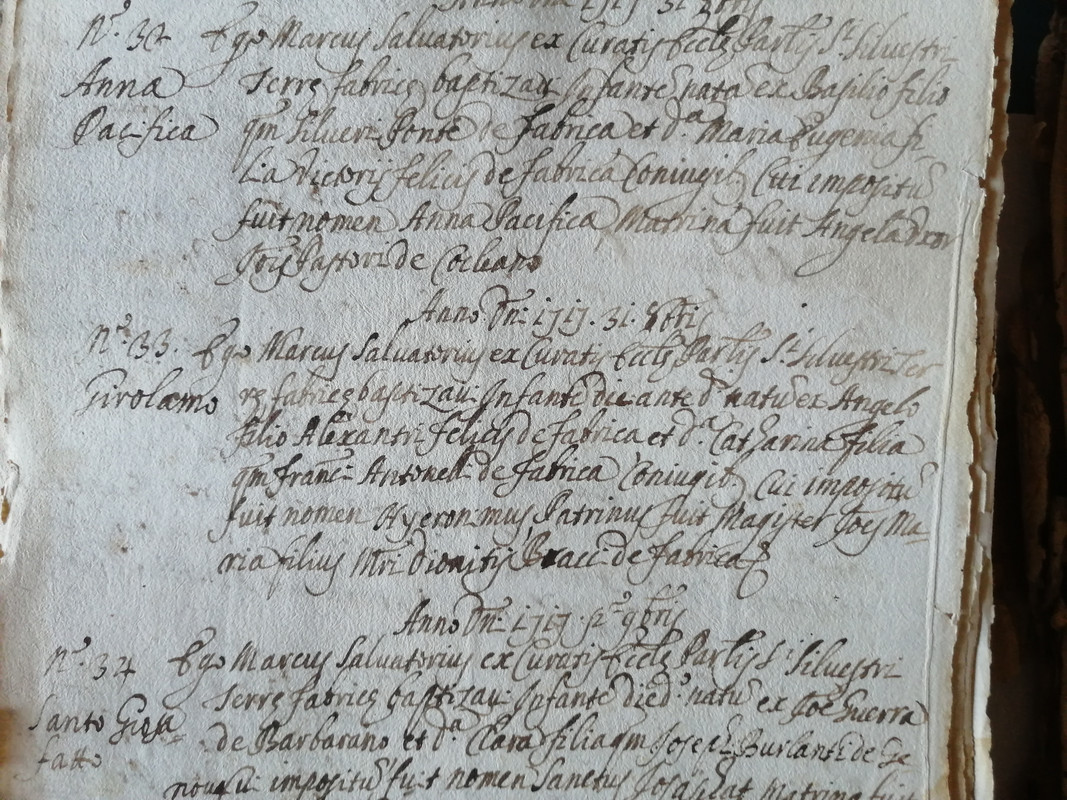 Anno Dni 1717 31 8bris
N.º 32 Ego Marcus Salvatorius ex Curatis Eccle Parlis S.ti Silvestri
Anna Terre fabrice baptizavi Infante nata ex Basilio filio
Pacifica qm Silveri Ponte de fabrica et d.a Maria Eugenia fi-
lia Victorij felicis de fabrica Coniugib Cui impositu
fuit nomen Anna Pacifica Matrina fuit Angela uxor
Jois Pastori de
Anno Dni 1717. 31. 8bris
N.º 33. Ego Marcus Salvatorius ex Curatis Eccle Parlis S.ti Silvestri Ter
Girolamo re fabrice baptizavi Infante die ante d. natu ex Angelo
filio Alexantri felicis de fabrica et d.a Catharina filia
qm Franci Antonelli de fabrica Coniugib Cui impositu
fuit nomen Hyeronimus Patrinus fuit Magister Joes Ma-
ria filius Mri Dionitis Bracci de fabrica
Anno Dni 1717 p.º 9bris
N.º 34 Ego Marcus Salvatorius ex Curatis Eccle Parlis S.ti Silvestri
Terre fabrice baptizavi Infante die d. natu ex Joe Guerra
Santo Giosa de Barbarano et d.a Clara filia qm Josep. Burlanti de Ge
fatto nova cui impositu fuit nomen Sanctus Josafat Matrina fuit